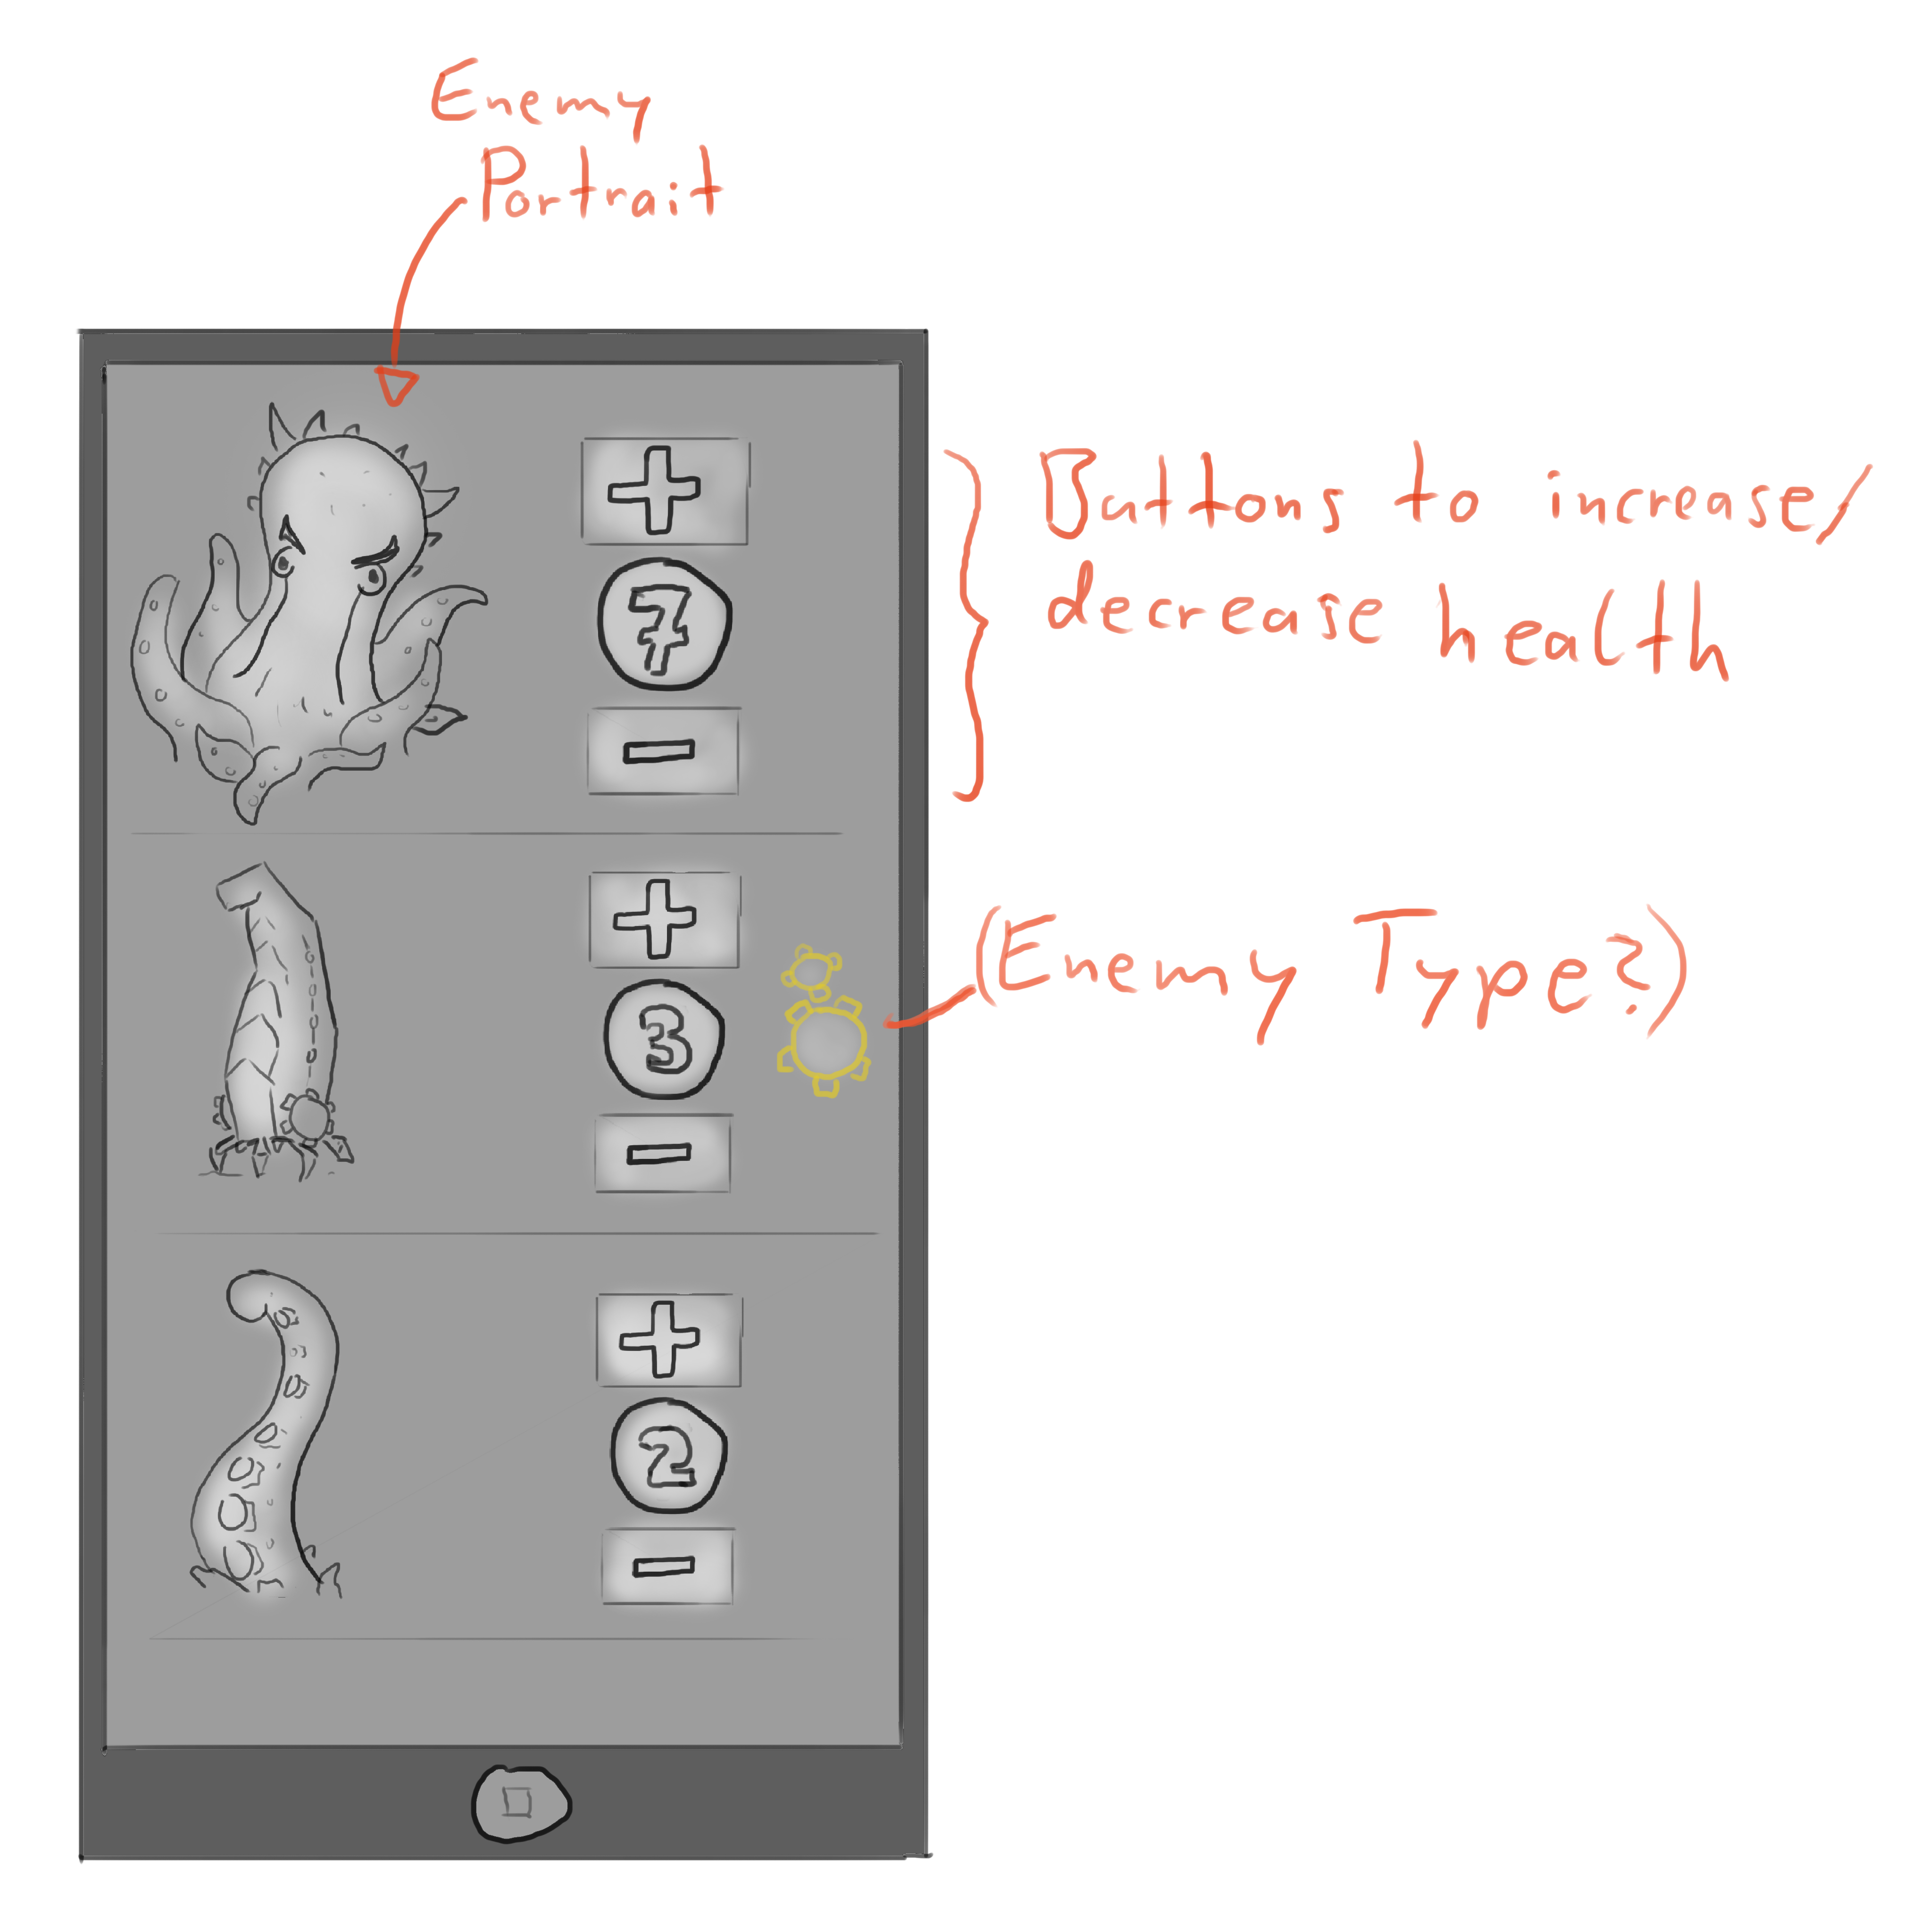 Enemy
Portrait
+
7
-
Buttons to increase/
decrease health
+
3
-
(Enemy Type?)
+
2
-